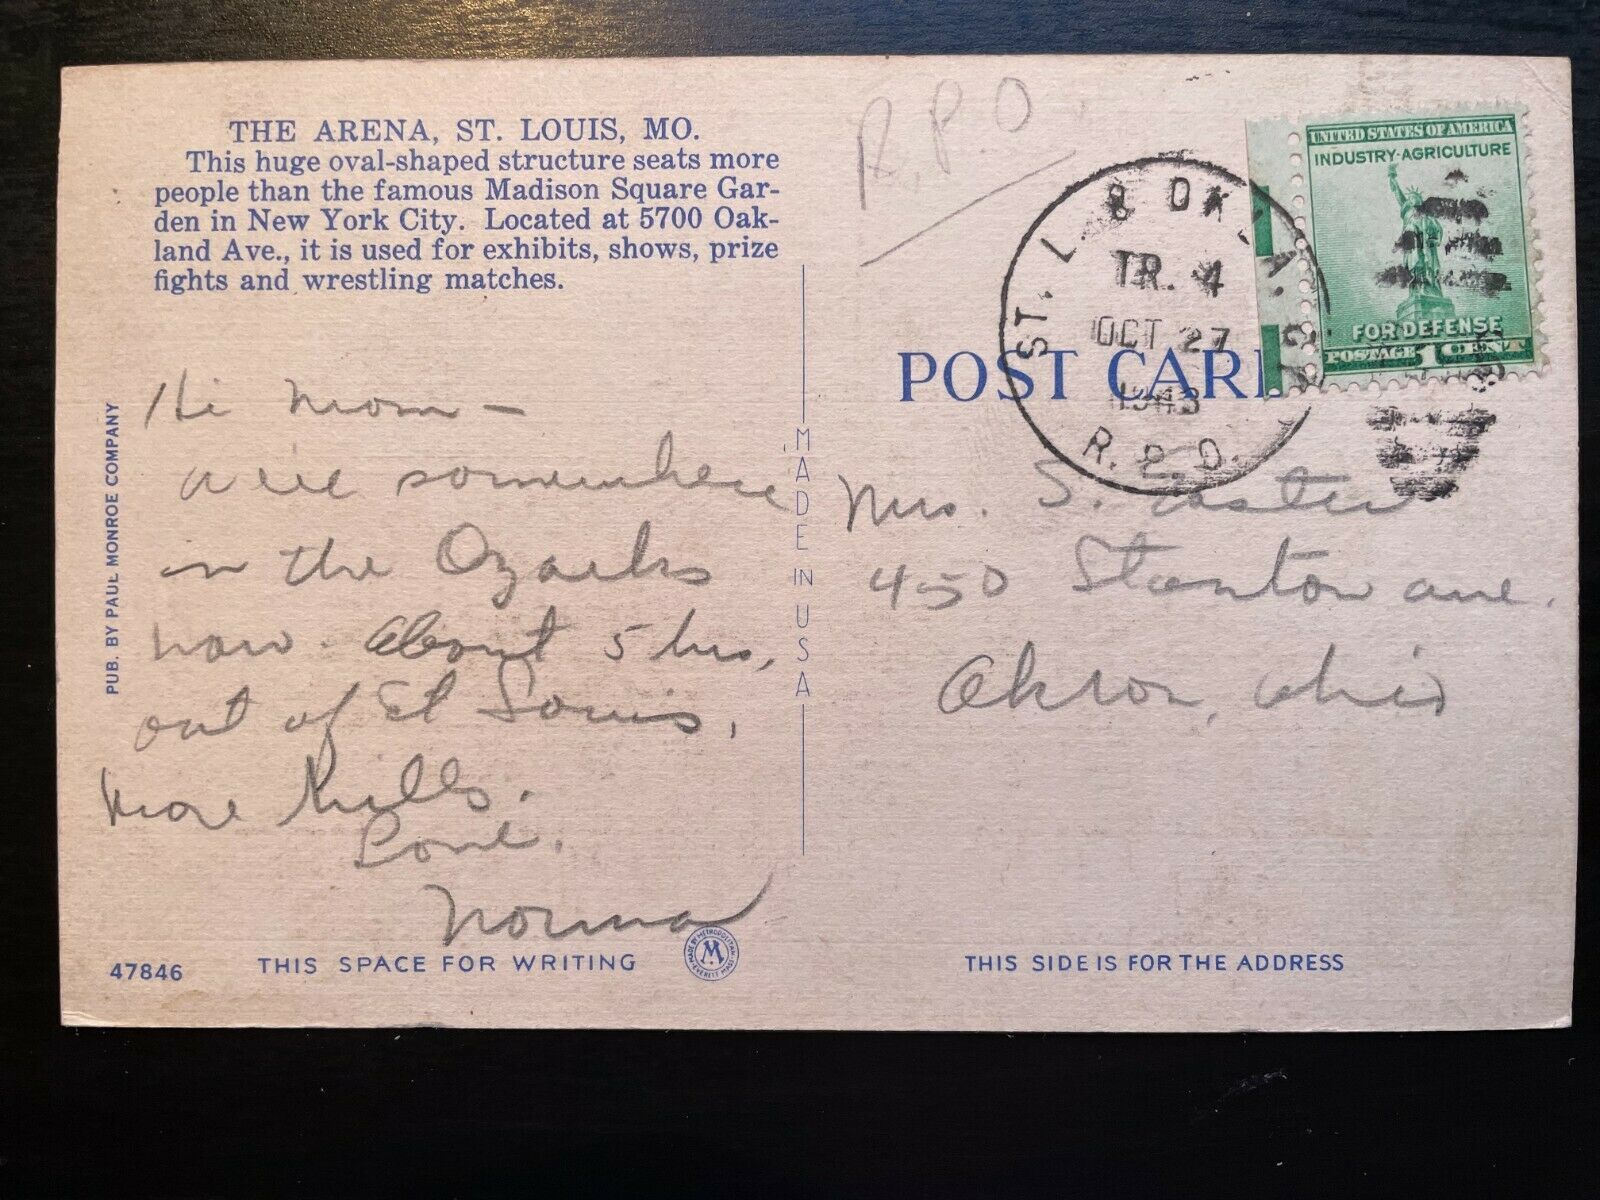 THE ARENA, ST. LOUIS, MO.
This huge oval-shaped structure seats more
people than the famous Madison Square Gar-
den in New York City. Located at 5700 Oak-
land Ave., it is used for exhibits, shows, prize
fights and wrestling matches.
Hi Mom -
We're somewhere
in the Ozarks
now. About 5 hrs,
out of St Louis.
More hills.
Love,
Norma
PUB. BY PAUL MONROE COMPANY
47846
THIS SPACE FOR WRITING
MADE BY METROPOLITAN
M
EVERETT MASS.
MADE IN USA
R.P.O
ST. L. & OKLA. CY.
TR. 4
OCT 27
1943
R.P.O.
UNITED STATES OF AMERICA
INDUSTRY-AGRICULTURE
FOR DEFENSE
POSTAGE 1 CENT
POST CARD
Mrs. S. Easter
450 Stanton ave.
Akron, Ohio
THIS SIDE IS FOR THE ADDRESS